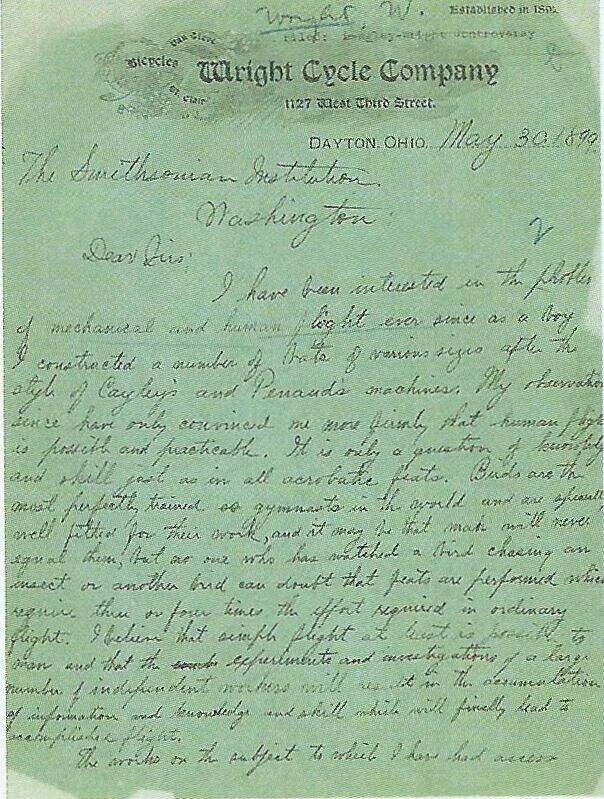 Wright, W.
Established in 1892.
File: Langley-Wright Controversy
Van Cleve
Bicycles
St. Clair
Wright Cycle Company
1127 West Third Street.
DAYTON, OHIO. May 30 1899.
The Smithsonian Institution.
Washington:
2
Dear Sirs:
I have been interested in the problem
of mechanical and human flight ever since as a boy
I constructed a number of bats of various sizes after the
style of Cayley's and Penaud's machines. My observations
since have only convinced me more firmly that human flight
is possible and practicable. It is only a question of knowledge
and skill just as in all acrobatic feats. Birds are the
most perfectly trained gymnasts in the world and are specially
well fitted for their work, and it may be that man will never
equal them, but no one who has watched a bird chasing an
insect or another bird can doubt that feats are performed which
require three or four times the effort required in ordinary
flight. I believe that simple flight at least is possible to
man and that the experiments and investigations of a large
number of independent workers will result in the accumulation
of information and knowledge and skill which will finally lead to
accomplished flight.
The works on the subject to which I have had access